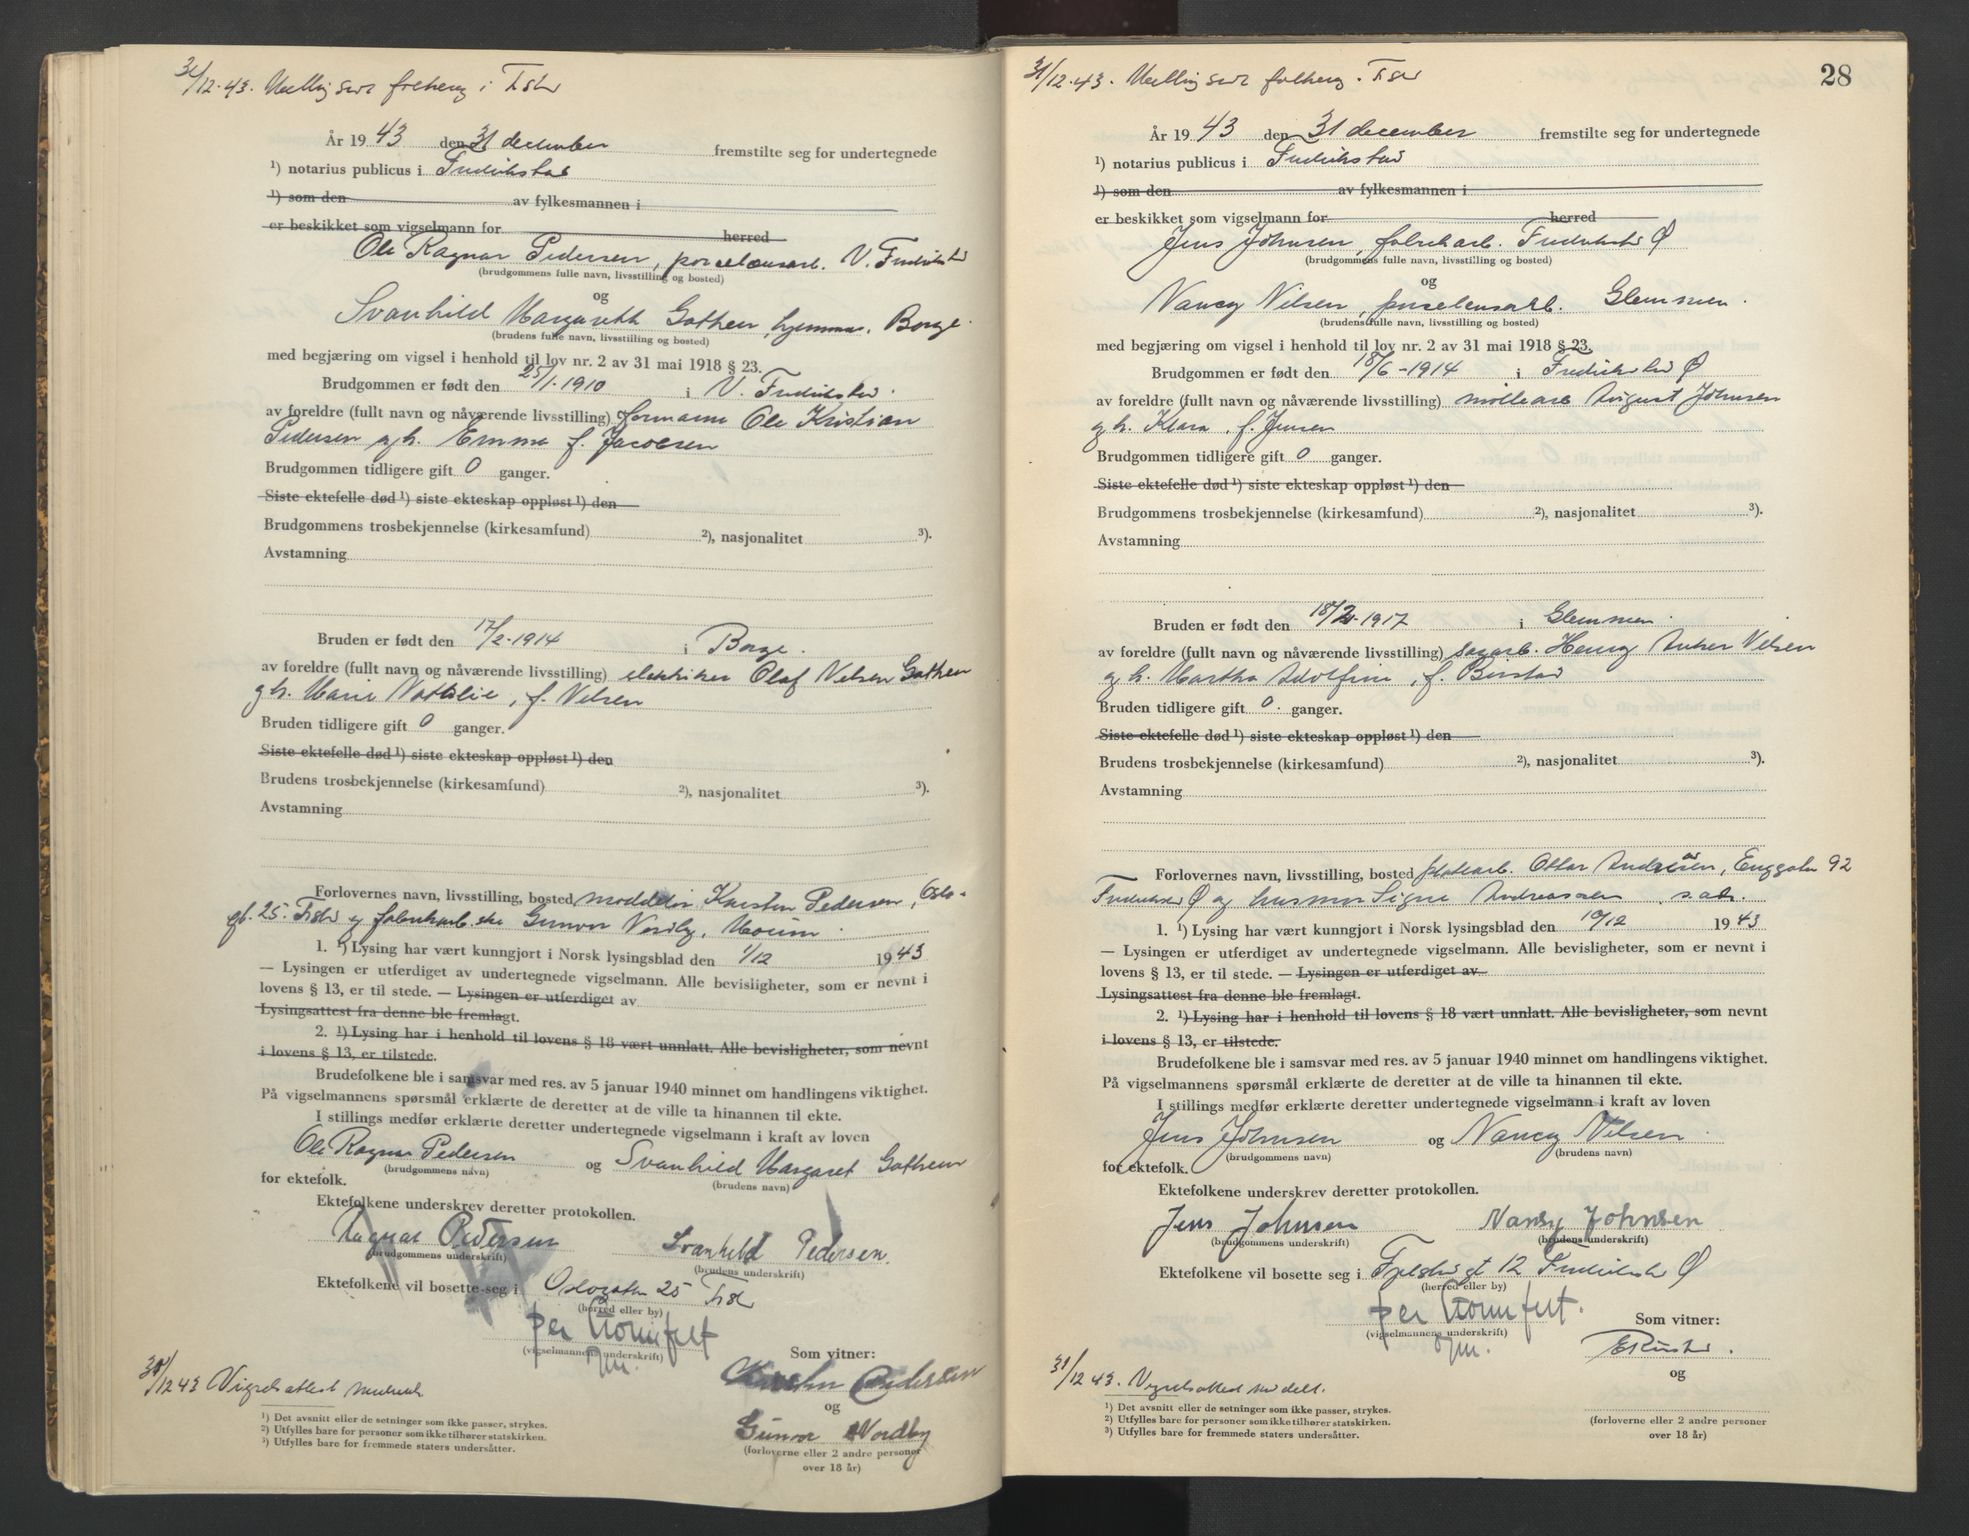 31/12.43.
År 1943 den 31 december fremstilte seg for undertegnede
¹) notarius publicus i Fredrikstad
¹) som den av fylkesmannen i
er beskikket som vigselmann for herred
Ole Ragnar Pedersen, porcelensarb. V. Fredrikstad
(brudgommens fulle navn, livsstilling og bosted)
og
Svanhild Margareth Gathen, hjemme, Borge.
(brudens fulle navn, livsstilling og bosted)
med begjæring om vigsel i henhold til lov nr. 2 av 31 mai 1918 § 23.
Brudgommen er født den 25/1-1910 i V. Fredrikstad.
av foreldre (fullt navn og nåværende livsstilling) formann Ole Kristian
Pedersen og h. Emma f. Jacobsen
Brudgommen tidligere gift 0 ganger.
Siste ektefelle død ¹) siste ekteskap oppløst ¹) den
Brudgommens trosbekjennelse (kirkesamfund) ²), nasjonalitet ³).
Avstamning
Bruden er født den 17/2-1914 i Borge.
av foreldre (fullt navn og nåværende livsstilling) elektriker Olaf Nilsen Gathen
og h. Marie Nathalie, f. Nilsen
Bruden tidligere gift 0 ganger.
Siste ektefelle død ¹) siste ekteskap oppløst ¹) den
Brudens trosbekjennelse (kirkesamfund) ²), nasjonalitet ³).
Avstamning
Forlovernes navn, livsstilling, bosted Karsten Pedersen, Oslo-
gt. 25. Fstd og fabrikarb.ske Gunvor Nordby,
1. ¹) Lysing har vært kunngjort i Norsk lysingsblad den 1/12 1943
— Lysingen er utferdiget av undertegnede vigselmann. Alle bevisligheter, som er nevnt i
lovens § 13, er til stede. — Lysingen er utferdiget av
Lysingsattest fra denne ble fremlagt.
2. ¹) Lysing har i henhold til lovens § 18 vært unnlatt. Alle bevisligheter, som nevnt
i lovens § 13, er tilstede.
Brudefolkene ble i samsvar med res. av 5 januar 1940 minnet om handlingens viktighet.
På vigselmannens spørsmål erklærte de deretter at de ville ta hinannen til ekte.
I stillings medfør erklærte deretter undertegnede vigselmann i kraft av loven
Ole Ragnar Pedersen og Svanhild Margaret Gathen
(brudgommens navn) (brudens navn)
for ektefolk.
Ektefolkene underskrev deretter protokollen.
Ragnar Pedersen Svanhild Pedersen.
(brudgommens underskrift) (brudens underskrift)
Ektefolkene vil bosette seg i Oslogaten 25 Fstd
(herred eller by)
per
(vigselmannens underskrift)
Som vitner:
Karsten Pedersen
og
Gunvor Nordby
(forloverne eller 2 andre personer
over 18 år)
12 43 Vigselsattest
¹) Det avsnitt eller de setninger som ikke passer, strykes.
²) Utfylles bare for personer som ikke tilhører statskirken.
³) Utfylles bare for fremmede staters undersåtter.
31/12.43.
28
År 1943 den 31 december fremstilte seg for undertegnede
¹) notarius publicus i Fredrikstad
¹) som den av fylkesmannen i
er beskikket som vigselmann for herred
Jens Johnsen, fabrikarb. Fredrikstad Ø
(brudgommens fulle navn, livsstilling og bosted)
og
Nancy Nilsen, porselensarb. Glemmen.
(brudens fulle navn, livsstilling og bosted)
med begjæring om vigsel i henhold til lov nr. 2 av 31 mai 1918 § 23.
Brudgommen er født den 18/6-1914 i Fredrikstad Ø
av foreldre (fullt navn og nåværende livsstilling) møllearb August Johnsen
og h. Klara, f. Jensen
Brudgommen tidligere gift 0 ganger.
Siste ektefelle død ¹) siste ekteskap oppløst ¹) den
Brudgommens trosbekjennelse (kirkesamfund) ²), nasjonalitet ³).
Avstamning
Bruden er født den 18/2-1917 i Glemmen.
av foreldre (fullt navn og nåværende livsstilling) sagarb. Henry Anker Nilsen
og h. Martha Adolfine, f.
Bruden tidligere gift 0. ganger.
Siste ektefelle død ¹) siste ekteskap oppløst ¹) den
Brudens trosbekjennelse (kirkesamfund) ²), nasjonalitet ³).
Avstamning
Forlovernes navn, livsstilling, bosted Ottar Andreasen, Enggatn 92
Fredrikstad Ø og husmor Signe Andreassen s.adr.
1. ¹) Lysing har vært kunngjort i Norsk lysingsblad den 10/12 1943
— Lysingen er utferdiget av undertegnede vigselmann. Alle bevisligheter, som er nevnt i
lovens § 13, er til stede. — Lysingen er utferdiget av
Lysingsattest fra denne ble fremlagt.
2. ¹) Lysing har i henhold til lovens § 18 vært unnlatt. Alle bevisligheter, som nevnt
i lovens § 13, er tilstede.
Brudefolkene ble i samsvar med res. av 5 januar 1940 minnet om handlingens viktighet.
På vigselmannens spørsmål erklærte de deretter at de ville ta hinannen til ekte.
I stillings medfør erklærte deretter undertegnede vigselmann i kraft av loven
Jens Johnsen og Nancy Nilsen
(brudgommens navn) (brudens navn)
for ektefolk.
Ektefolkene underskrev deretter protokollen.
Jens Johnsen Nancy Johnsen
(brudgommens underskrift) (brudens underskrift)
Ektefolkene vil bosette seg i gt 12 Fredrikstad Ø
(herred eller by)
per
(vigselmannens underskrift)
Som vitner:
og
(forloverne eller 2 andre personer
over 18 år)
31/12 43. Vigselsattest meddelt.
¹) Det avsnitt eller de setninger som ikke passer, strykes.
²) Utfylles bare for personer som ikke tilhører statskirken.
³) Utfylles bare for fremmede staters undersåtter.